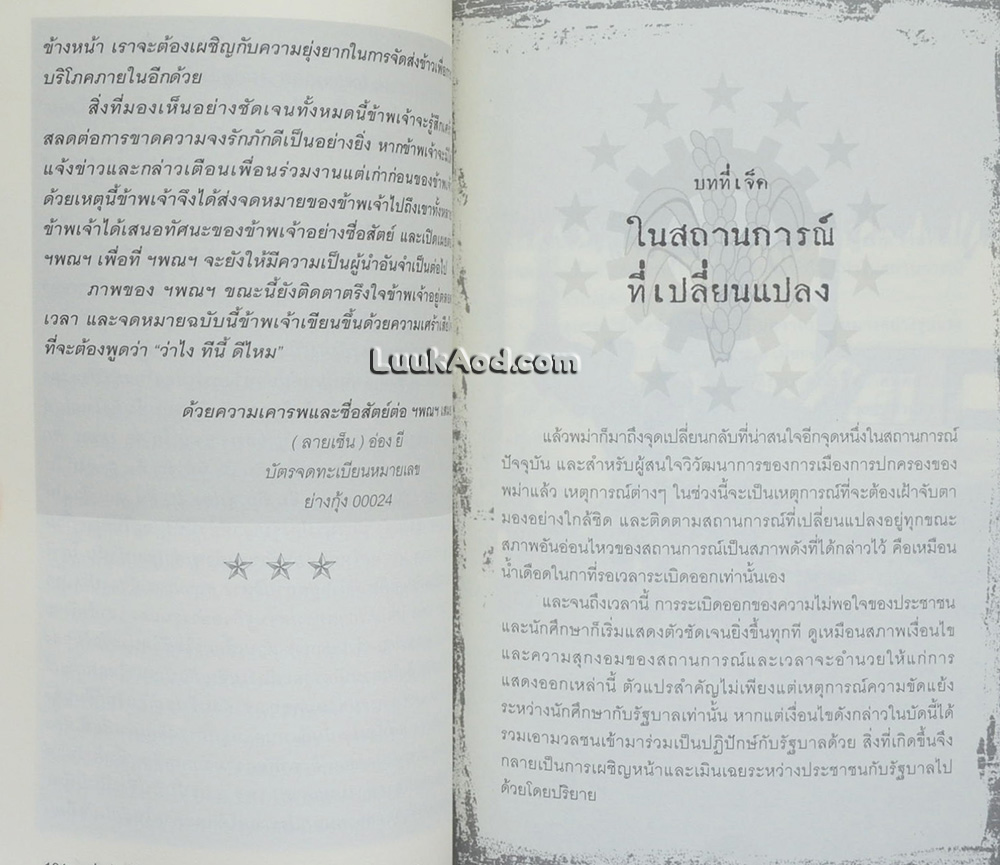 ข้างหน้า เราจะต้องเผชิญกับความยุ่งยากในการจัดส่งข้าวเพื่อการ
บริโภคภายในอีกด้วย
สิ่งที่มองเห็นอย่างชัดเจนทั้งหมดนี้ข้าพเจ้าจะรู้สึก
สลดต่อการขาดความจงรักภักดีเป็นอย่างยิ่ง หากข้าพเจ้าจะ
แจ้งข่าวและกล่าวเตือนเพื่อนร่วมงานแต่เก่าก่อนของ
ด้วยเหตุนี้ข้าพเจ้าจึงได้ส่งจดหมายของข้าพเจ้าไปถึงเขา
ข้าพเจ้าได้เสนอทัศนะของข้าพเจ้าอย่างซื่อสัตย์ และ
ฯพณฯ เพื่อที่ ฯพณฯ จะยังให้มีความเป็นผู้นำอันจำเป็นต่อไป
ภาพของ ฯพณฯ ขณะนี้ยังติดตาตรึงใจข้าพเจ้าอยู่
เวลา และจดหมายฉบับนี้ข้าพเจ้าเขียนขึ้นด้วยความ
ที่จะต้องพูดว่า “ว่าไง ทีนี้ ดีไหม”
ด้วยความเคารพและซื่อสัตย์ต่อ ฯพณฯ
( ลายเซ็น ) อ่อง ยี
บัตรจดทะเบียนหมายเลข
ย่างกุ้ง 00024
LuukAod.com
บทที่เจ็ด
ในสถานการณ์
ที่เปลี่ยนแปลง
แล้วพม่าก็มาถึงจุดเปลี่ยนกลับที่น่าสนใจอีกจุดหนึ่งในสถานการณ์
ปัจจุบัน และสำหรับผู้สนใจวิวัฒนาการของการเมืองการปกครองของ
พม่าแล้ว เหตุการณ์ต่างๆ ในช่วงนี้จะเป็นเหตุการณ์ที่จะต้องเฝ้าจับตา
มองอย่างใกล้ชิด และติดตามสถานการณ์ที่เปลี่ยนแปลงอยู่ทุกขณะ
สภาพอันอ่อนไหวของสถานการณ์เป็นสภาพดังที่ได้กล่าวไว้ คือเหมือน
น้ำเดือดในกาที่รอเวลาระเบิดออกเท่านั้นเอง
และจนถึงเวลานี้ การระเบิดออกของความไม่พอใจของประชาชน
และนักศึกษาก็เริ่มแสดงตัวชัดเจนยิ่งขึ้นทุกที ดูเหมือนสภาพเงื่อนไข
และความสุกงอมของสถานการณ์และเวลาจะอำนวยให้แก่การ
แสดงออกเหล่านี้ ตัวแปรสำคัญไม่เพียงแต่เหตุการณ์ความขัดแย้ง
ระหว่างนักศึกษากับรัฐบาลเท่านั้น หากแต่เงื่อนไขดังกล่าวในบัดนี้ได้
รวมเอามวลชนเข้ามาร่วมเป็นปฏิปักษ์กับรัฐบาลด้วย สิ่งที่เกิดขึ้นจึง
กลายเป็นการเผชิญหน้าและเมินเฉยระหว่างประชาชนกับรัฐบาลไป
ด้วยโดยปริยาย